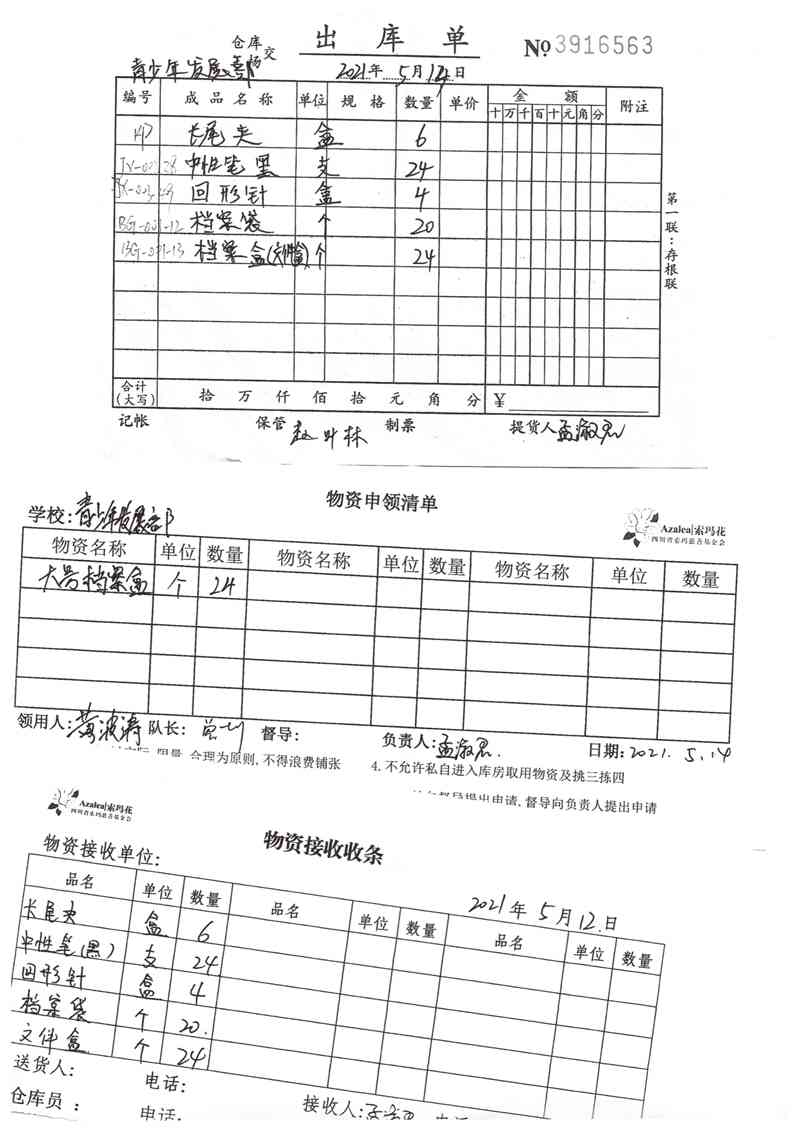 出 库 单
仓库 杨 交
No 3916563
青少年发展部
2021年5月14日
编号 成品名称 单位 规格 数量 单价 金额 附注
十万千百十元角分
长尾夹 盒 6
中性笔 黑 支 24
回形针 盒 4
BG-001-12 档案袋 个 20
BG-001-13 档案盒(文件盒) 个 24
第一联:存根联
合计(大写) 拾 万 仟 佰 拾 元 角 分 ¥
记帐 保管 赵叶林 制票 提货人 孟淑君
物资申领清单
Azalea|索玛花
四川省索玛慈善基金会
学校:青少年发展部
物资名称 单位 数量 物资名称 单位 数量 物资名称 单位 数量
大号档案盒 个 24
领用人:黄波涛 队长: 督导: 负责人:孟淑君 日期:2021.5.14
合理为原则,不得浪费铺张 4.不允许私自进入库房取用物资及挑三拣四
提出申请,督导向负责人提出申请
Azalea|索玛花
四川省索玛慈善基金会
物资接收收条
物资接收单位:
2021年5月12日
品名 单位 数量 品名 单位 数量 品名 单位 数量
长尾夹 盒 6
中性笔(黑) 支 24
回形针 盒 4
档案袋 个 20.
文件盒 个 24
送货人: 电话:
仓库员: 电话: 接收人: